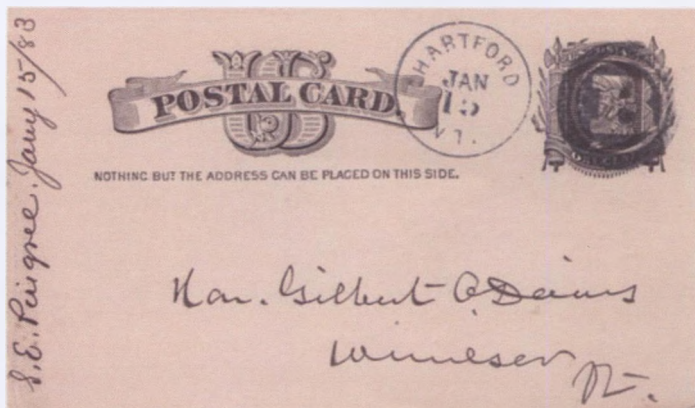 S. E. Pingree. Jany 15/83
US
POSTAL CARD.
HARTFORD
JAN
15
VT.
NOTHING BUT THE ADDRESS CAN BE PLACED ON THIS SIDE.
Hon. Gilbert A. Davis
Windsor
Vt.